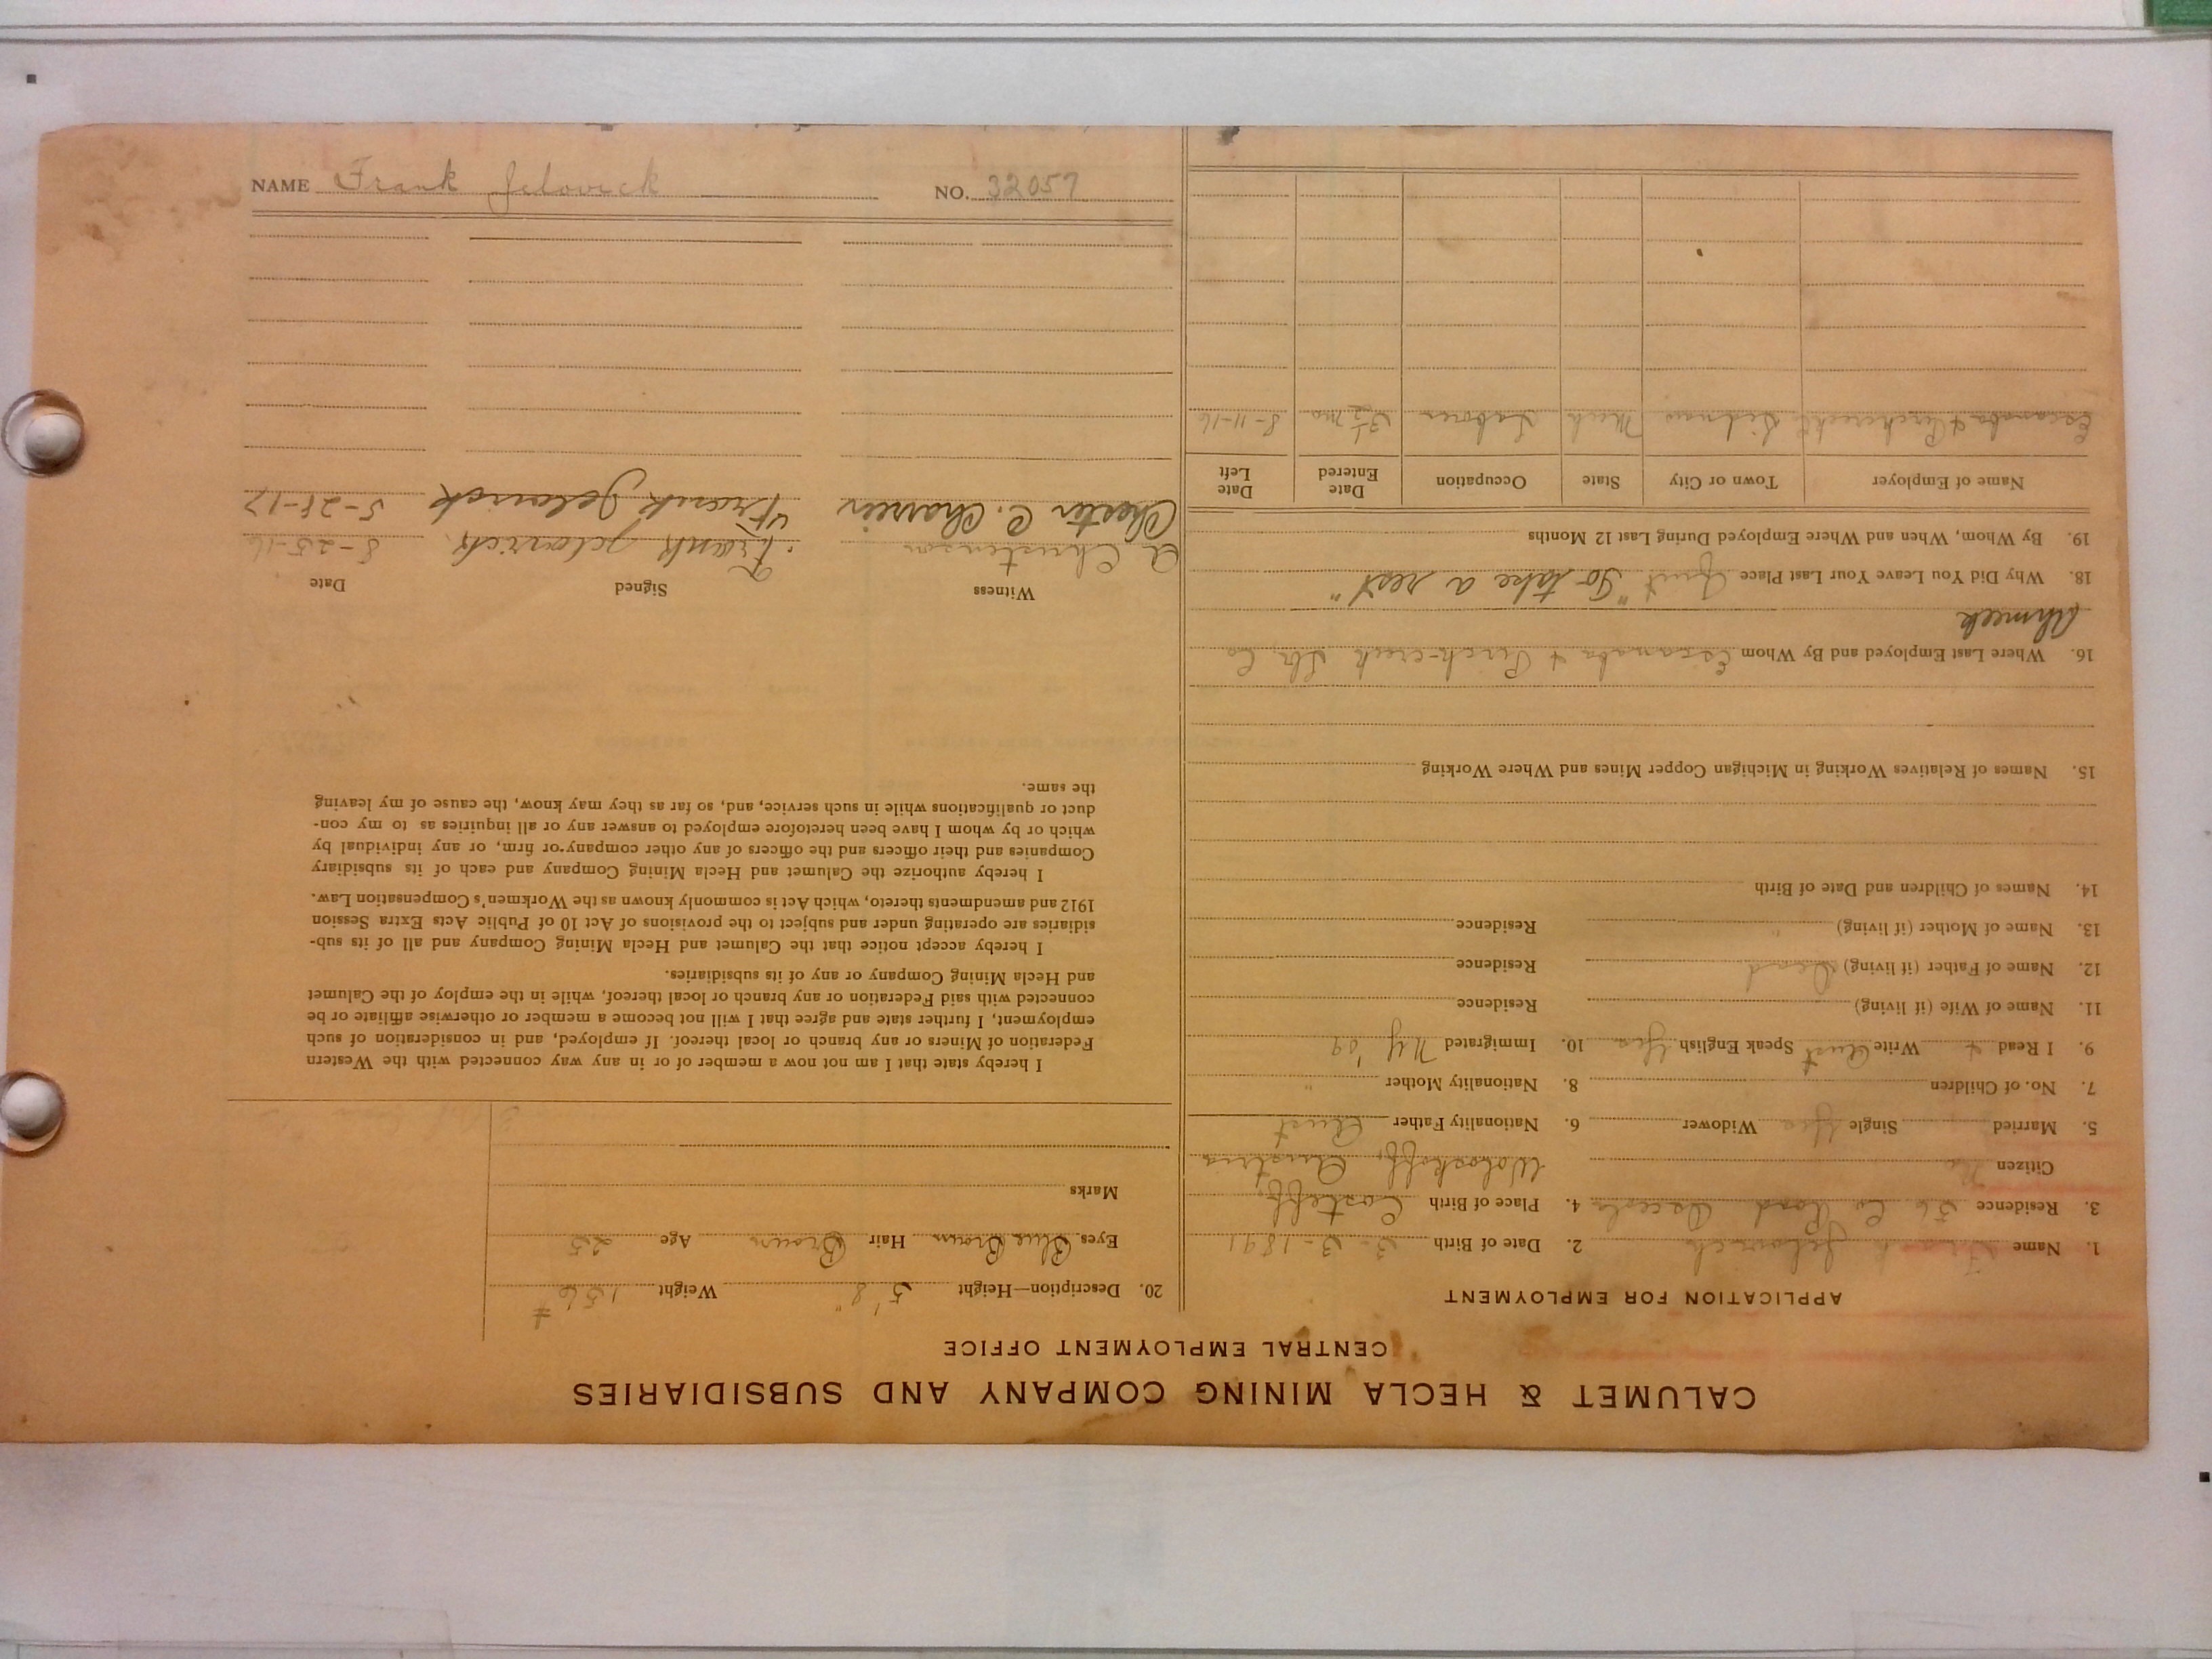 NAME Frank Jelovick NO. 32057
CALUMET & HECLA MINING COMPANY AND SUBSIDIARIES
CENTRAL EMPLOYMENT OFFICE
APPLICATION FOR EMPLOYMENT
1. Name Frank Jelovick 2. Date of Birth 3-3-1891
3. Residence 56 Co Road Osceola 4. Place of Birth
Citizen No Austria
5. Married Single Yes Widower 6. Nationality Father Aust
7. No. of Children 8. Nationality Mother "
9. I Read + Write Aust Speak English Yes 10. Immigrated NY '09
11. Name of Wife (if living) Residence
12. Name of Father (if living) Dead Residence
13. Name of Mother (if living) " Residence
14. Names of Children and Date of Birth
15. Names of Relatives Working in Michigan Copper Mines and Where Working
16. Where Last Employed and By Whom Escanaba + Perch-creek Lbr Co
Ahmeek
18. Why Did You Leave Your Last Place Quit "To take a rest"
19. By Whom, When and Where Employed During Last 12 Months
Name of Employer Town or City State Occupation Date Entered Date Left
Escanaba + Sidnaw Mich Laborer 3½ mo 8-11-16
20. Description—Height 5' 8" Weight 156 #
Eyes Blue Brown Hair Brown Age 25
Marks
I hereby state that I am not now a member of or in any way connected with the Western
Federation of Miners or any branch or local thereof. If employed, and in consideration of such
employment, I further state and agree that I will not become a member or otherwise affiliate or be
connected with said Federation or any branch or local thereof, while in the employ of the Calumet
and Hecla Mining Company or any of its subsidiaries.
I hereby accept notice that the Calumet and Hecla Mining Company and all of its sub-
sidiaries are operating under and subject to the provisions of Act 10 of Public Acts Extra Session
1912 and amendments thereto, which Act is commonly known as the Workmen's Compensation Law.
I hereby authorize the Calumet and Hecla Mining Company and each of its subsidiary
Companies and their officers and the officers of any other company or firm, or any individual by
which or by whom I have been heretofore employed to answer any or all inquiries as to my con-
duct or qualifications while in such service, and, so far as they may know, the cause of my leaving
the same.
Witness Signed Date
A Christenson Frank Jelovich 8-25-16
Chester C. Frank Jelovick 5-21-17